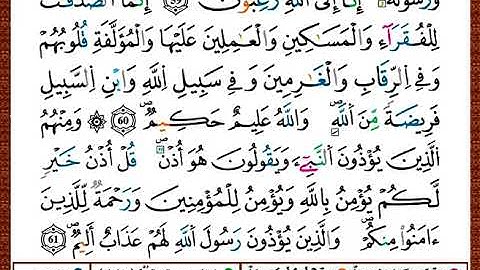 وَرَسُولُهُۥٓ إِنَّآ إِلَى ٱللَّهِ رَٰغِبُونَ ٥٩ إِنَّمَا ٱلصَّدَقَٰتُ
لِلْفُقَرَآءِ وَٱلْمَسَٰكِينِ وَٱلْعَٰمِلِينَ عَلَيْهَا وَٱلْمُؤَلَّفَةِ قُلُوبُهُمْ
وَفِى ٱلرِّقَابِ وَٱلْغَٰرِمِينَ وَفِى سَبِيلِ ٱللَّهِ وَٱبْنِ ٱلسَّبِيلِ
فَرِيضَةً مِّنَ ٱللَّهِ ۗ وَٱللَّهُ عَلِيمٌ حَكِيمٌ ٦٠ وَمِنْهُمُ
ٱلَّذِينَ يُؤْذُونَ ٱلنَّبِىَّ وَيَقُولُونَ هُوَ أُذُنٌ ۚ قُلْ أُذُنُ خَيْرٍ
لَّكُمْ يُؤْمِنُ بِٱللَّهِ وَيُؤْمِنُ لِلْمُؤْمِنِينَ وَرَحْمَةٌ لِّلَّذِينَ
ءَامَنُوا۟ مِنكُمْ ۚ وَٱلَّذِينَ يُؤْذُونَ رَسُولَ ٱللَّهِ لَهُمْ عَذَابٌ أَلِيمٌ ٦١